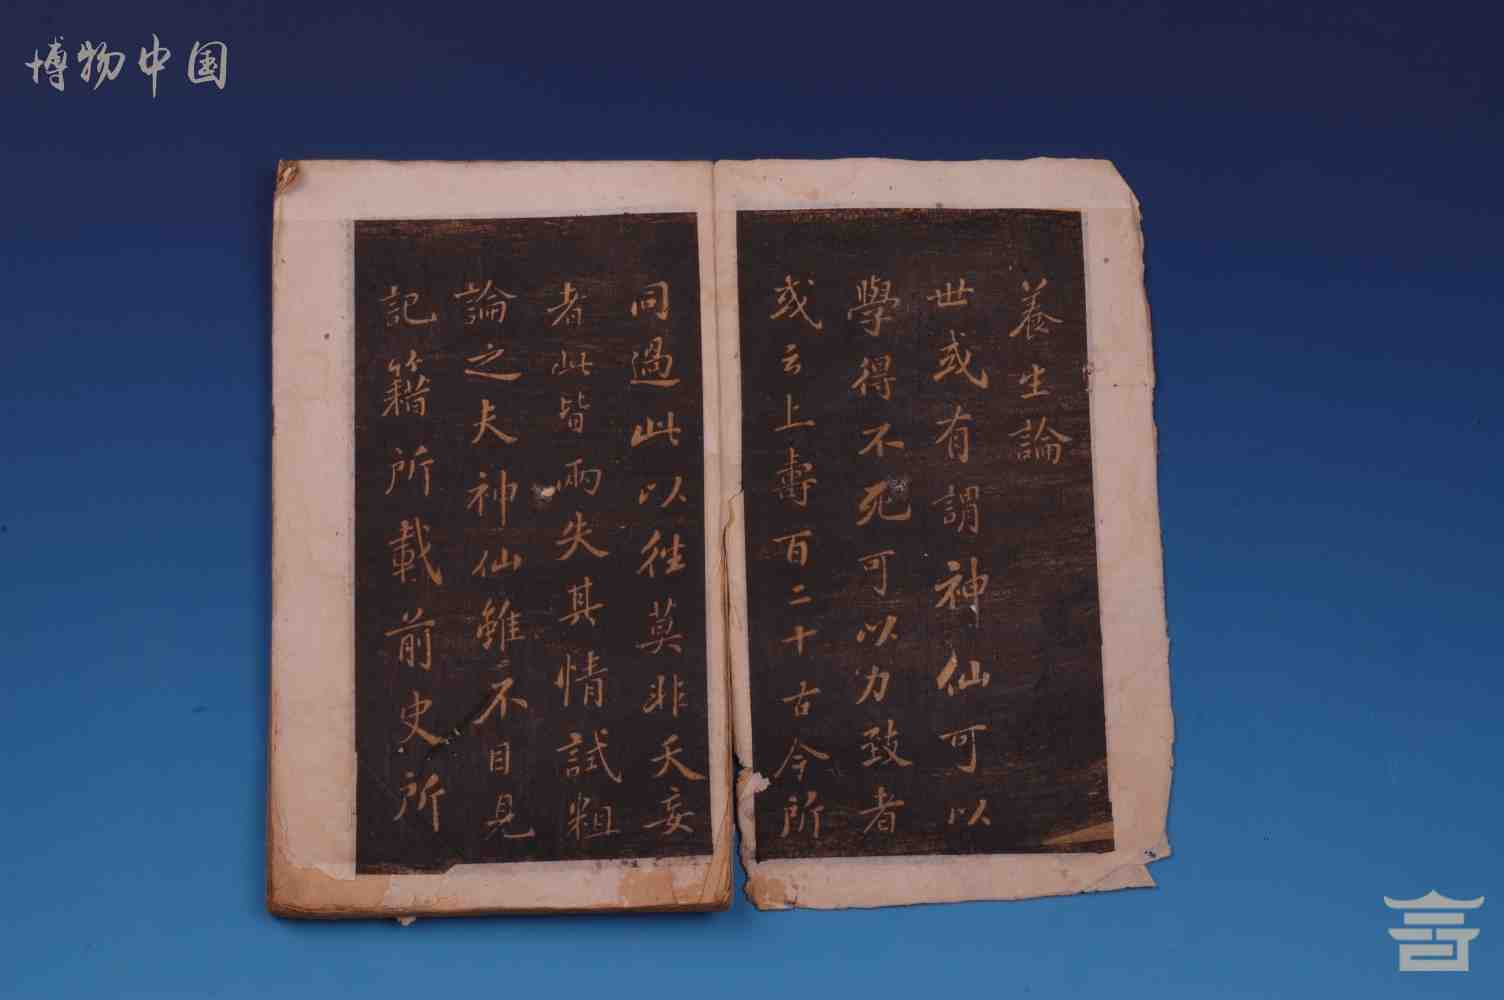 博物中国
養生論
世或有謂神仙可以
學得不死可以力致者
或云上壽百二十古今所
同過此以往莫非夭妄
者此皆兩失其情試粗
論之夫神仙雖不目見
記籍所載前史所